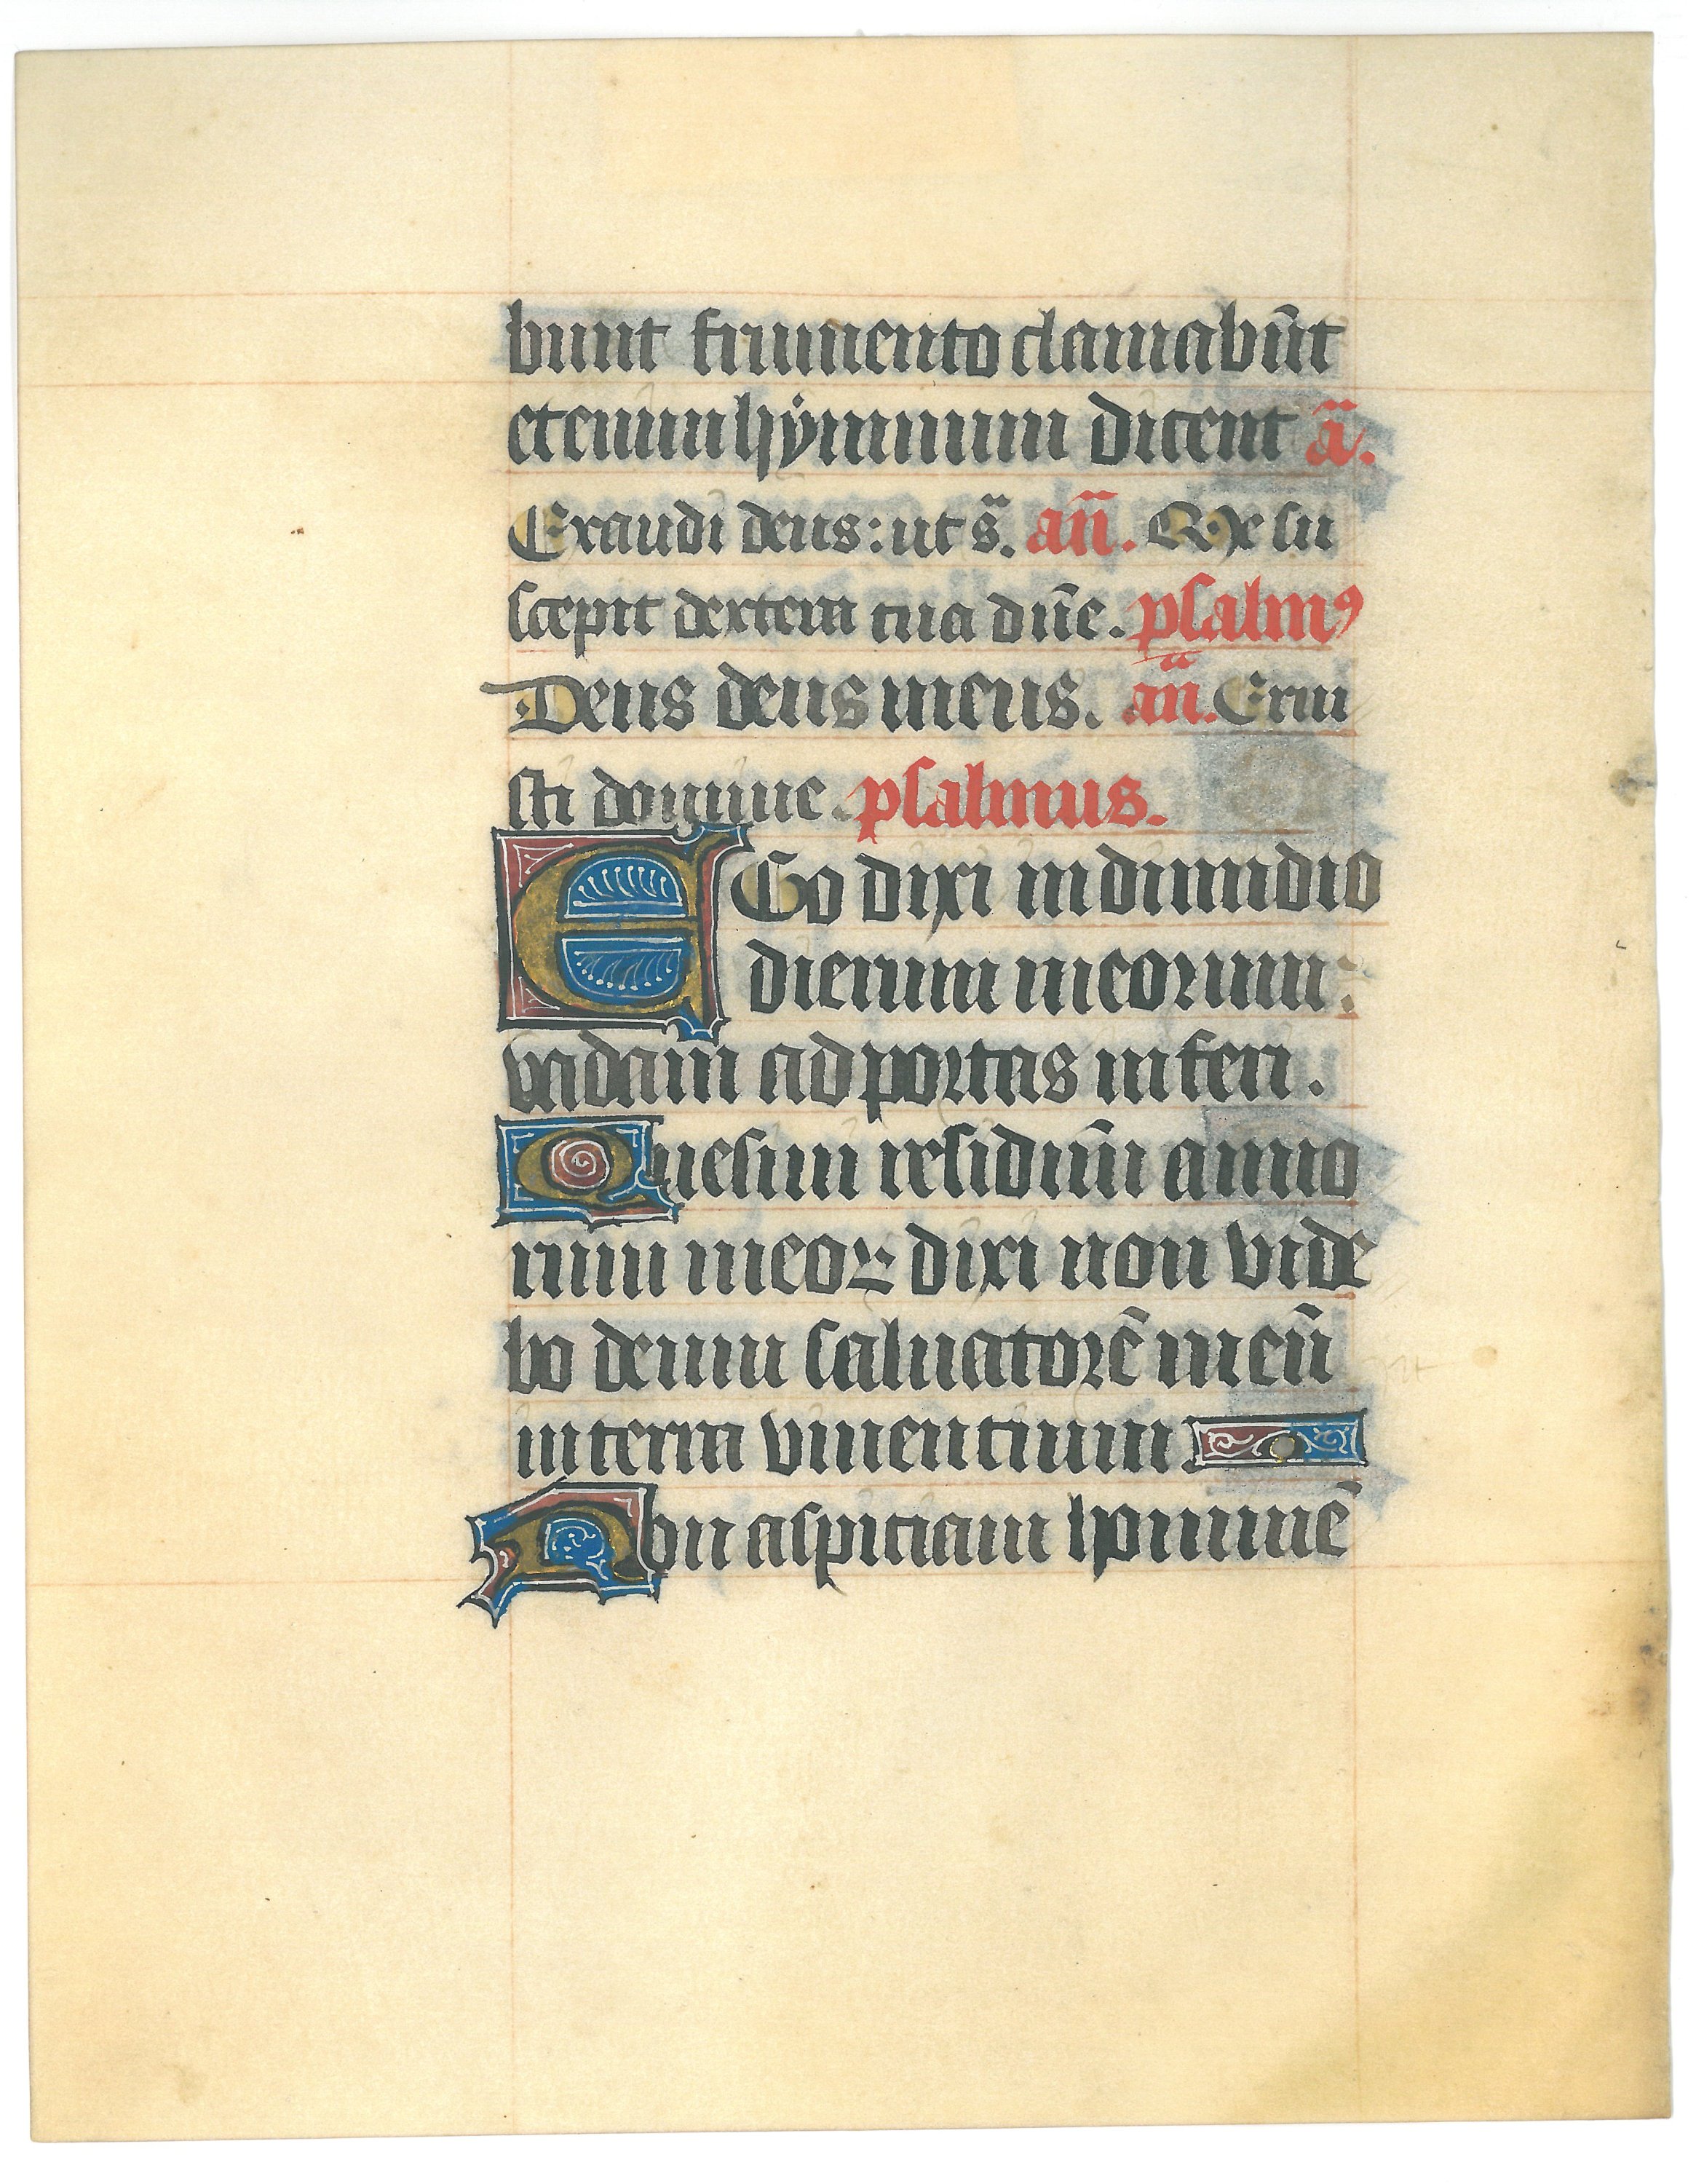 bunt frumento clamabūt
etenim hẏmnum dicent ā.
Exaudi deus: ut s̄. an̄. Me su
scepit dextera tua dn̄e. psalmꝰ
Deus deus meus. an̄. Erui
sti domine. psalmus.
EGo dixi in dimidio
dierum meorum:
vadam ad portas inferi.
Quesiui residuū anno
rum meoꝝ dixi non vide
bo deum saluatorē meū
in terra viuentium.
Non aspiciam hominē